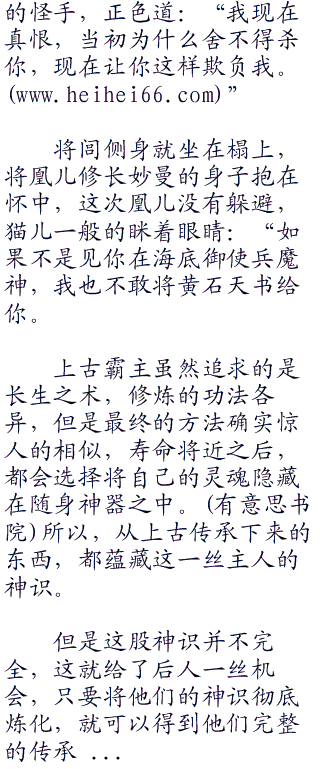 的怪手，正色道：“我现在
真恨，当初为什么舍不得杀
你，现在让你这样欺负我。
(www.heihei66.com)”
将闾侧身就坐在榻上，
将凰儿修长妙曼的身子抱在
怀中，这次凰儿没有躲避，
猫儿一般的眯着眼睛：“如
果不是见你在海底御使兵魔
神，我也不敢将黄石天书给
你。
上古霸主虽然追求的是
长生之术，修炼的功法各
异，但是最终的方法确实惊
人的相似，寿命将近之后，
都会选择将自己的灵魂隐藏
在随身神器之中。(有意思书
院)所以，从上古传承下来的
东西，都蕴藏这一丝主人的
神识。
但是这股神识并不完
全，这就给了后人一丝机
会，只要将他们的神识彻底
炼化，就可以得到他们完整
的传承 ...